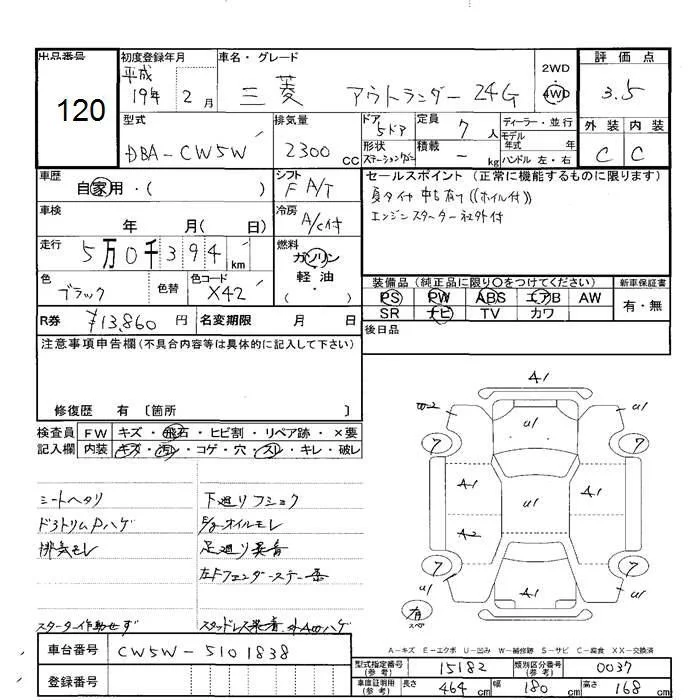 出品番号
120
初度登録年月
平成
19年 2月
車名・グレード
三菱 アウトランダー 24G
2WD
4WD
評価点
3.5
外装 内装
C C
型式
DBA-CW5W
排気量
2300cc
ドア
5ドア
形状
ステーションワゴン
定員
7人
積載
-kg
ディーラー・並行
モデル
年式 年
ハンドル 左・右
車歴
自家用・( )
シフト
F A/T
車検
年 月( 日)
冷房
A/C付
走行
5万0千394km
燃料
ガソリン
軽油
・
色
ブラック
色替
色コード
X42
R券
¥13,860円
名変期限 月 日
セールスポイント(正常に機能するものに限ります)
夏タイヤ 中古 有り((ホイル付))
エンジンスターター社外付
装備品(純正品に限り○をつけてください)
PS PW ABS エアB AW
SR ナビ TV カワ
新車保証書
有・無
後日品
注意事項申告欄(不具合内容等は具体的に記入して下さい)
修復歴 有 〔箇所 〕
検査員
記入欄
FW キズ・飛石・ヒビ割・リペア跡・×要
内装 キズ・汚レ・コゲ・穴・スレ・キレ・破レ
シートヘタリ
ドアトリムPハゲ
排気モレ
スターター作動せず
下廻りフショク
E/gオイルモレ
足廻り発錆
左Fフェンダーステー歪
A1
W2
U1
U1
7
7
A1
U1
A1
A2
7
7
U1
A1
U1
有
スペ
A-キズ E-エクボ U-凹み W-補修跡 S-サビ C-腐食 XX-交換済
車台番号
CW5W-5101838
登録番号
型式指定番号
(参考)
15182
類別区分番号
(参考)
0037
車庫証明用
(参考)
長さ 464cm 幅 180cm 高さ 168cm